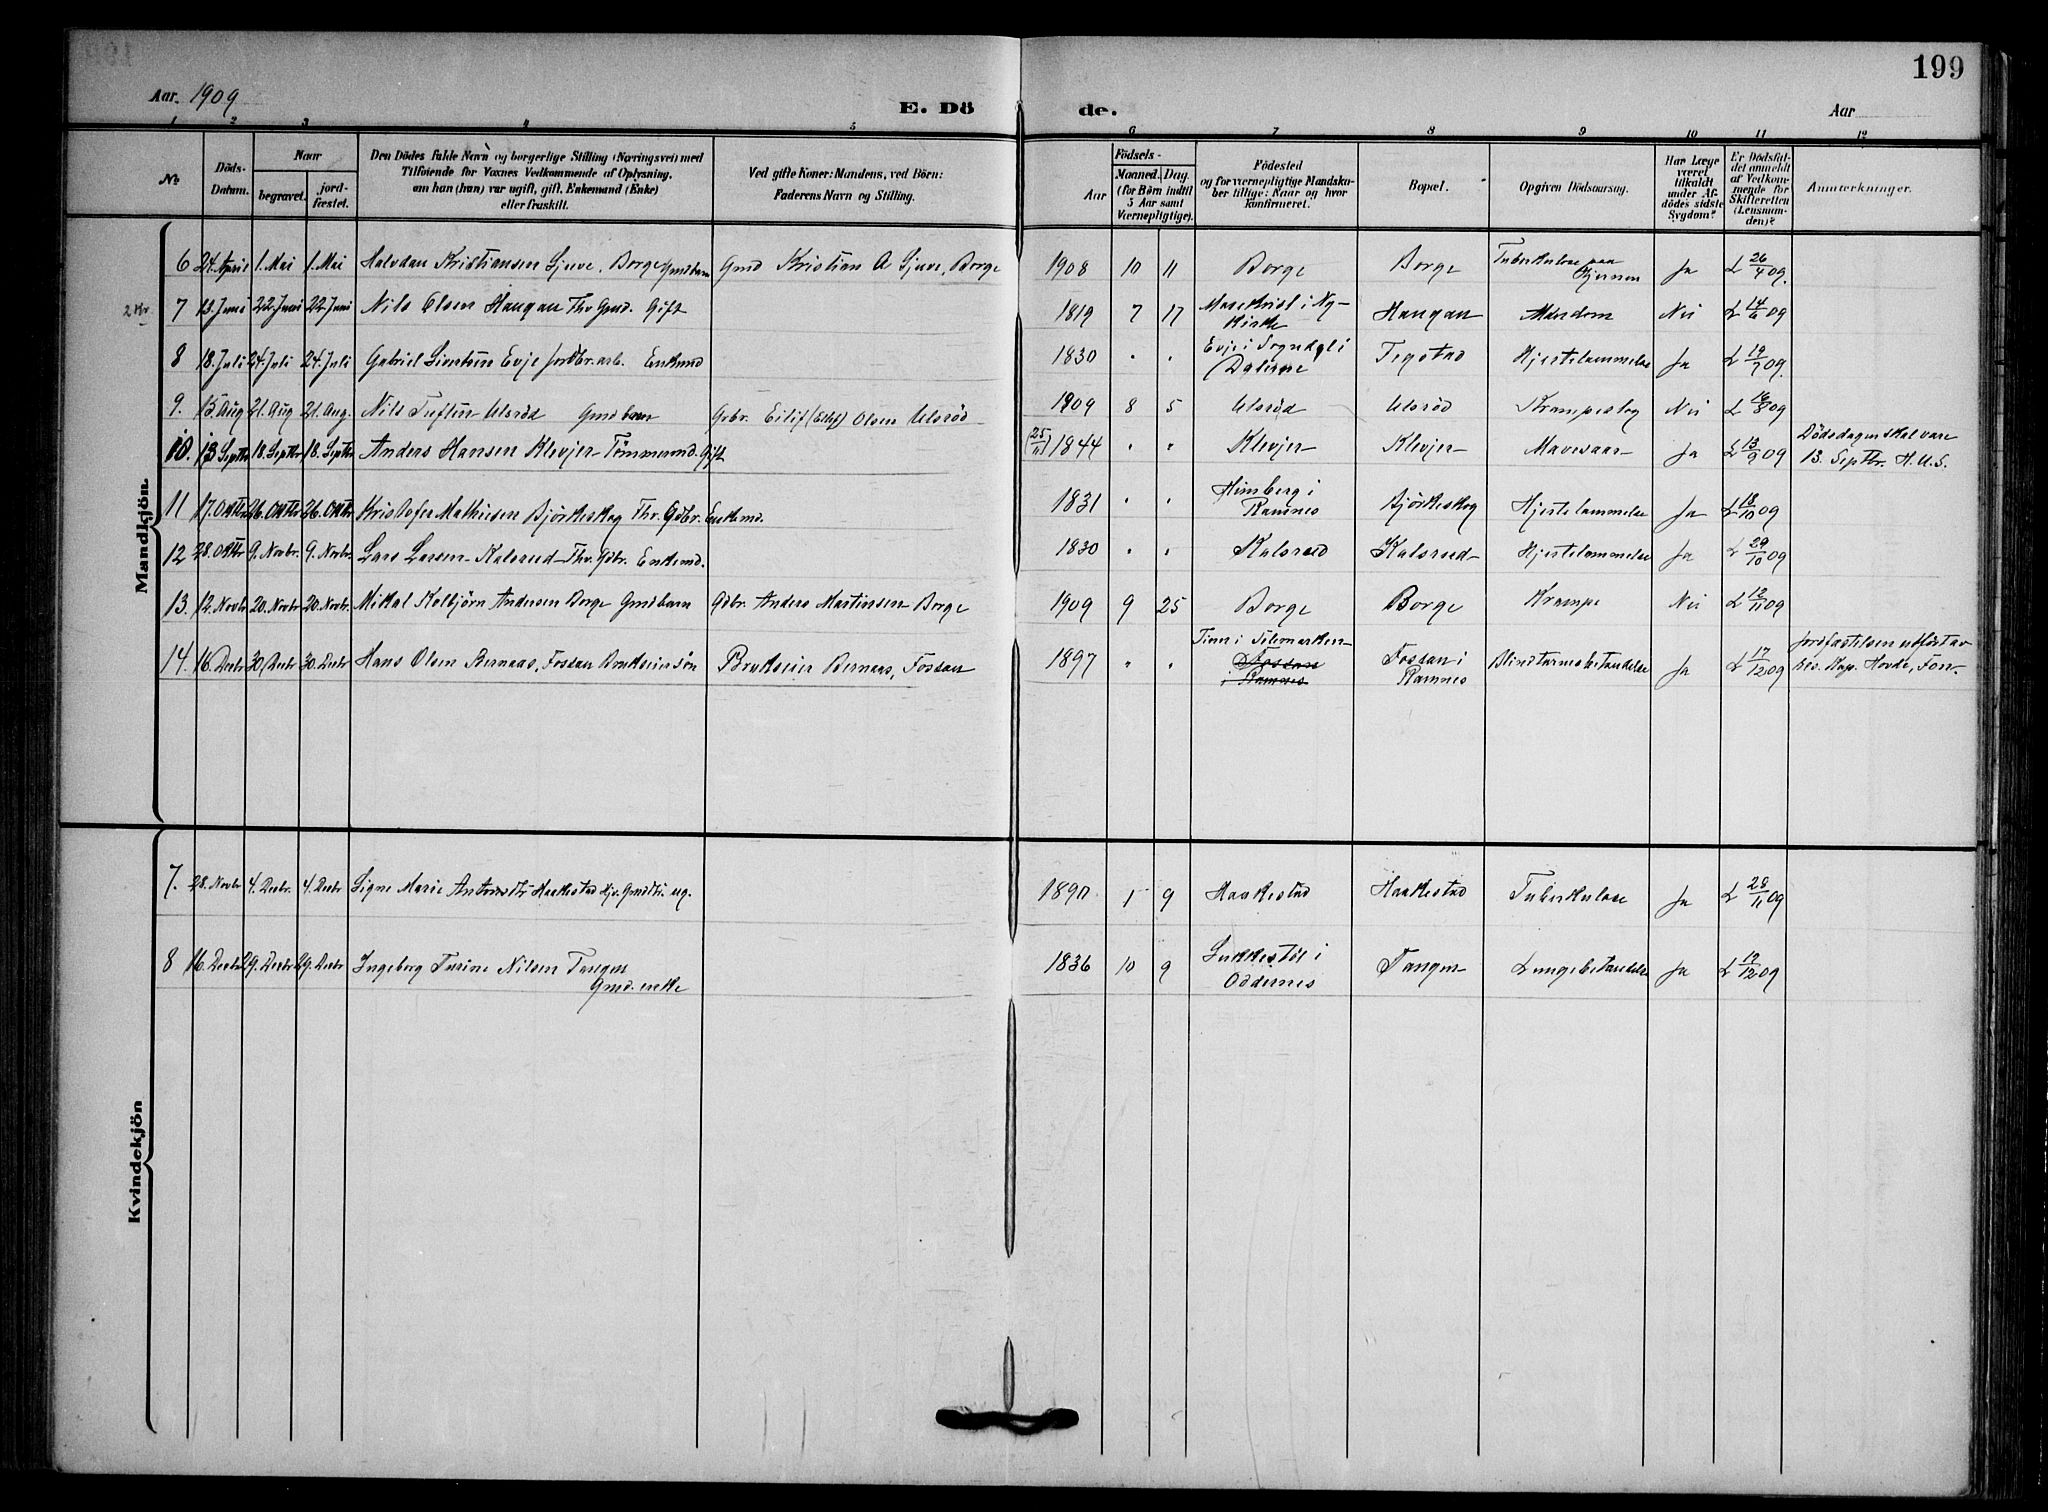 199
Aar. 1909
E. Dö de.
Aar
1 2 3 4 5 6 7 8 9 10 11 12
No.
Döds-Datum.
Naar
begravet.
jord-fæstet.
Den Dödes fulde Navn og borgerlige Stilling (Næringsvei) med
Tilföiende for Voxnes Vedkommende af Oplysning,
om han (hun) var ugift, gift, Enkemand (Enke)
eller fraskilt.
Ved gifte Koner: Mandens, ved Börn:
Faderens Navn og Stilling.
Födsels-
Aar
Maaned. Dag.
(for Börn indtil
5 Aar samt
Værnepligtige).
Födested
og for værnepligtige Mandska-
ber tillige: Naar og hvor
konfirmeret.
Bopæl.
Opgiven Dödsaarsag.
Har Læge
været
tilkaldt
under Af-
dödes sidste
Sygdom?
Er Dödsfal-
det anmeldt
af Vedkom-
mende for
Skifteretten
(Lensman-
den)?
Anmærkninger.
Mandkjön.
6 24. April 1. Mai 1. Mai Halvdan Kristiansen Sjuve, Borge Gmdbarn Gmd Kristian A Sjuve, Borge 1908 10 11 Borge Borge Tuberkulose paa Hjernen Ja L 26/4 09.
2 Kr. 7 13. Juni 22. Juni 22. Juni Nils Olsen Haugan Fhv Gmd. Gift 1819 7 17 i Ny-kirke Haugan Alderdom Nei L 14/6 09
8 18. Juli 24. Juli 24. Juli Gabriel Evje jordbr. arb. Enkemd 1830 " " Evje i Sogndal i Dalerne Tegstad Hjertelammelse Ja L 19/7 09.
9. 15 Aug 21. Aug 21. Aug. Nils Ulsröd Gmdbarn Gbr. Eilif (Ellef) Olsen Ulsröd 1909 8 5 Ulsröd Ulsröd Krampeslag Nei L 16/8 09
10. 13 Septbr 18. Septbr 18. Septbr Anders Hansen Klevjer Tömmermd. Gift (25/11) 1844 " " Klevjer Klevjer Mavesaar Ja L 13/9 09 Dödsdagen skal være 13. Septbr. H.U.S.
11 17. Oktbr 26. Oktbr 26. Oktbr Kristofer Mathisen Bjørkeskog Fhv. Gdbr. Enkemd. 1831 " " Himberg i Ramnes Bjørkeskog Hjertelammelse Ja L 18/10 09
12 28. Oktbr 9. Novbr. 9. Novbr. Lars Larsen Kalsrud Fhv. Gdbr. Enkemd. 1830 " " Kalsrud Kalsrud Hjertelammelse Ja L 29/10 09
13. 12. Novbr 20. Novbr 20. Novbr. Mikal Kolbjörn Andersen Borge Gmdbarn Gdbr. Anders Martinsen Borge 1909 9 25 Borge Borge Krampe Nei L 12/11 09
14. 16. Decbr 30. Decbr 30. Decbr Hans Olsen Bernaas, Fossan Brukseiersön Brukseier Bernaas, Fossan 1897 " " Tinn i Telemarken Fossan i Ramnes Fossan i Ramnes Blindtarmsbetændelse Ja L 17/12 09 Jordfæstelsen utført av Res. Kap. Hovde, Fon
Kvindekjön
7. 28. Novbr 4. Decbr. 4. Decbr Signe Marie Antonsdtr Haakestad Hjv. Gmdtr. ug. 1890 1 9 Haakestad Haakestad Tuberkulose Ja L 29/11 09
8 16. Decbr 29. Decbr 29. Decbr Ingeborg Turine Nilsen Tangen Gmd. enke 1836 10 9 i Oddernes Tangen Lungebetændelse Ja L 17/12 09